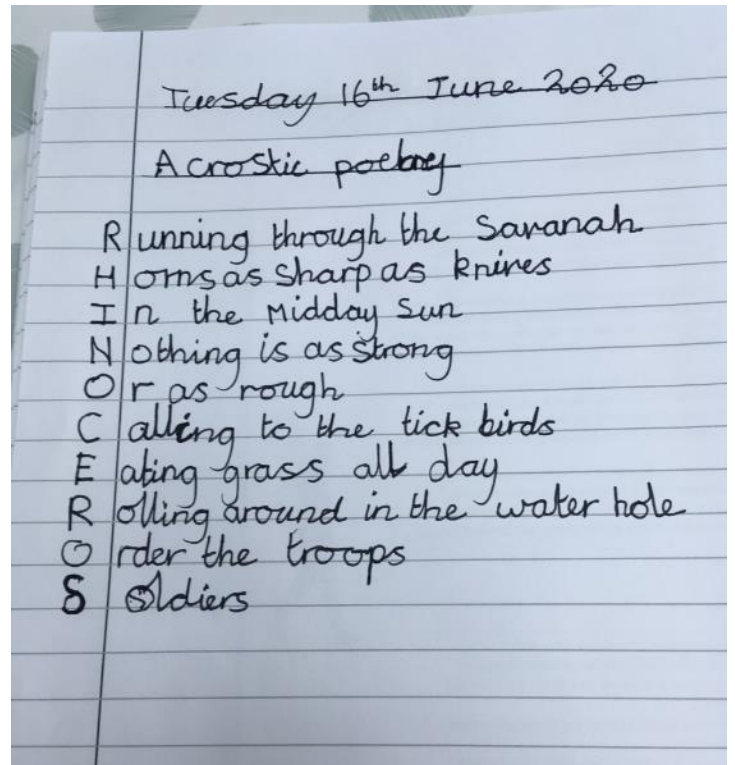 Tuesday 16th June 2020
Acrostic poetry
Running through the Savanah
Horns as sharp as knives
In the Midday Sun
Nothing is as strong
Or as rough
Calling to the tick birds
Eating grass all day
Rolling around in the water hole
Order the troops
Soldiers